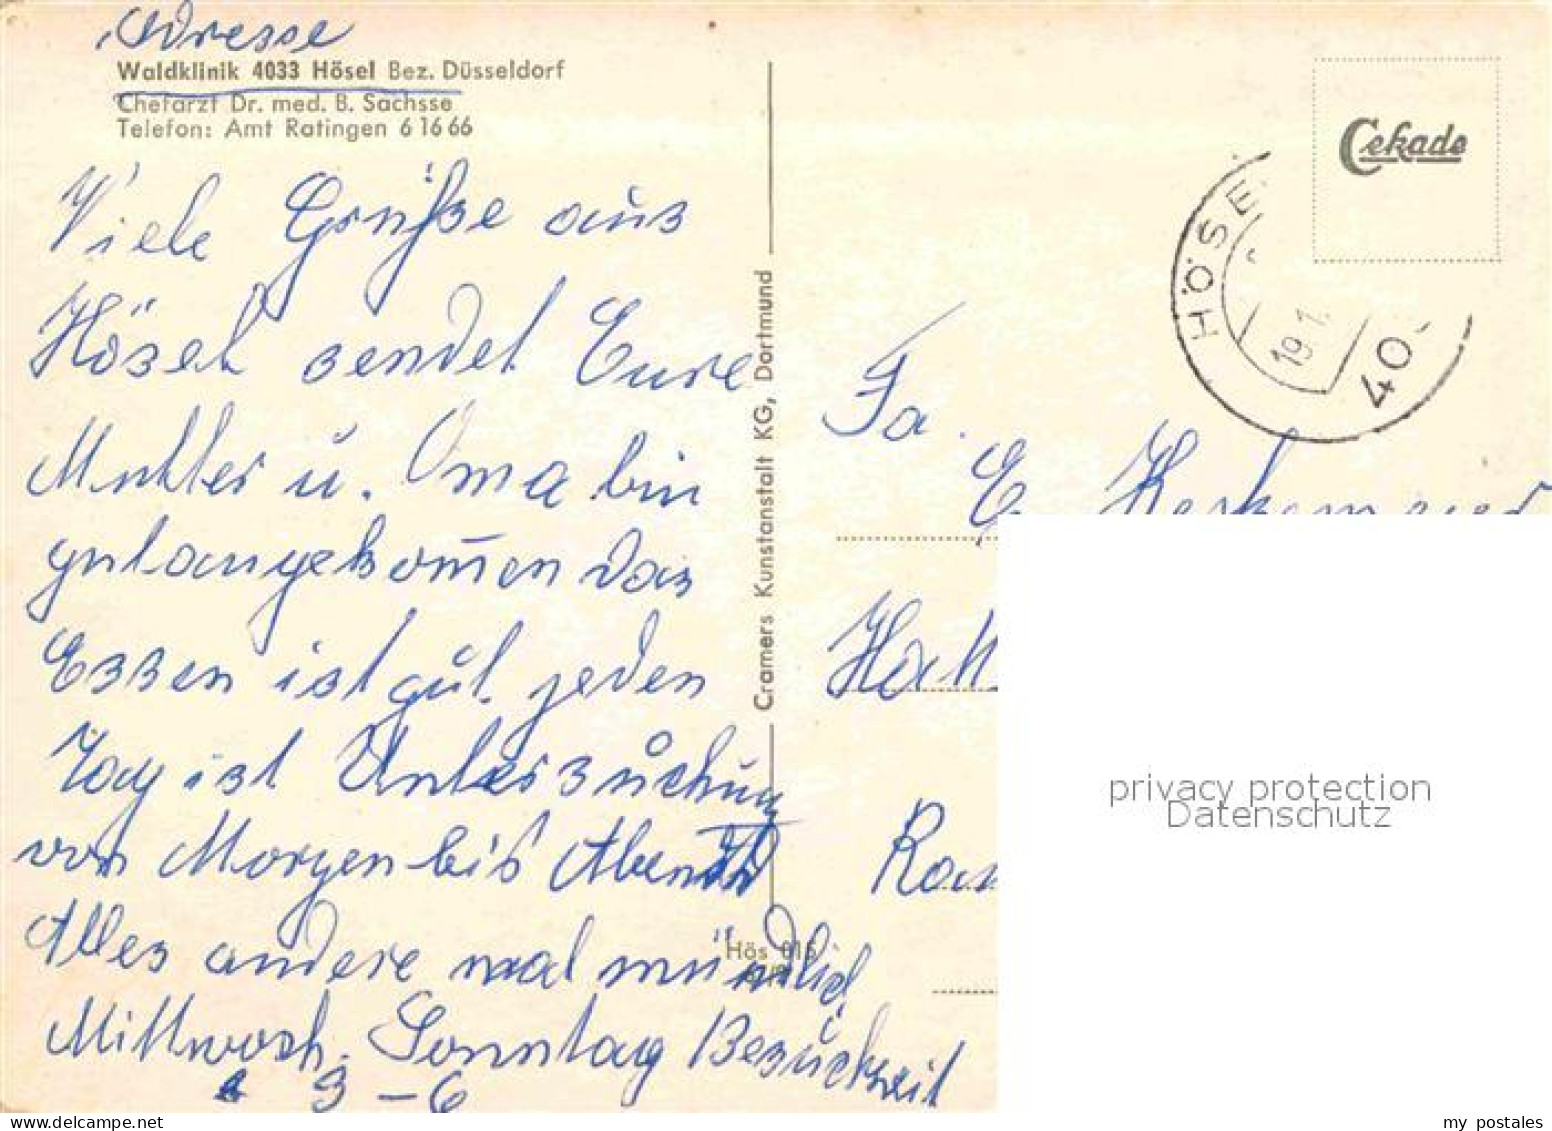 Adresse
Waldklinik 4033 Hösel Bez. Düsseldorf
Chefarzt Dr. med. B. Sachsse
Telefon: Amt Ratingen 6 16 66
Viele Grüße aus
Hösel sendet Eure
Mutter u. Oma bin
gut angekommen das
Essen ist gut. jeden
Tag ist Untersuchung
von Morgen bis Abend
Alles andere mal mündlich
Mittwoch. Sonntag Besuchzeit
3 – 6
Cramers Kunstanstalt KG, Dortmund
Hös 015
Cekade
HÖSE
19.1.
40
Fa.
E.
privacy protection
Datenschutz
my postales